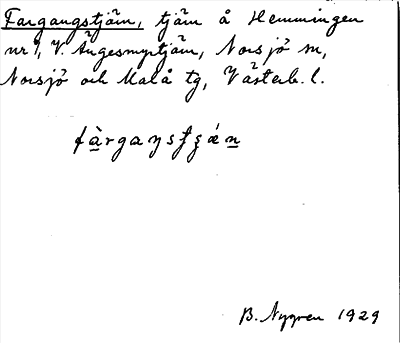 Fargangstjärn, tjärn å Hemmingen
nr 1, V. Ängesmyrtjärn, Norsjö sn,
Norsjö och Malå tg, Västerb. l.
B. Nygren 1929